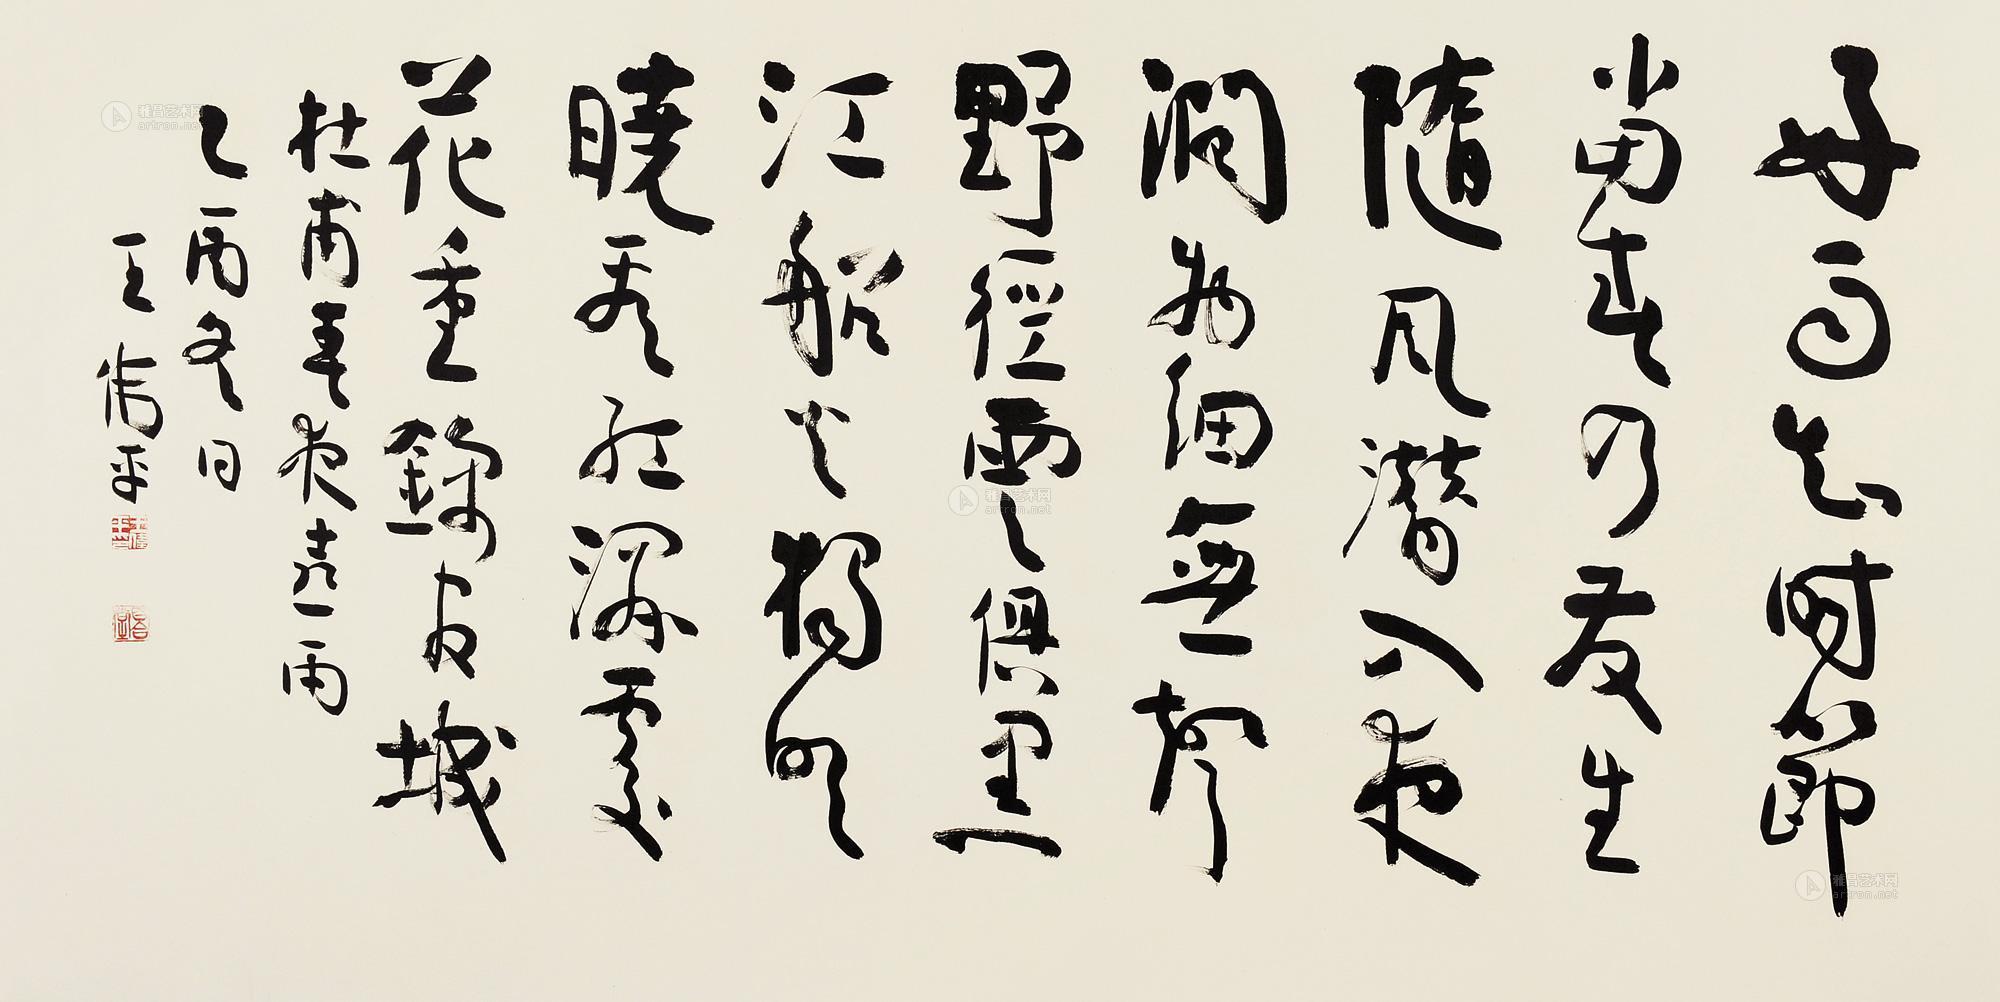 好雨知時節
當春乃發生
隨風潛入夜
潤物細無聲
野徑雲俱黑
江船火獨明
曉看紅濕處
花重錦官城
杜甫春夜喜雨
乙酉冬日
王偉平
雅昌艺术网
artron.net
雅昌艺术网
artron.net
雅昌艺术网
artron.net